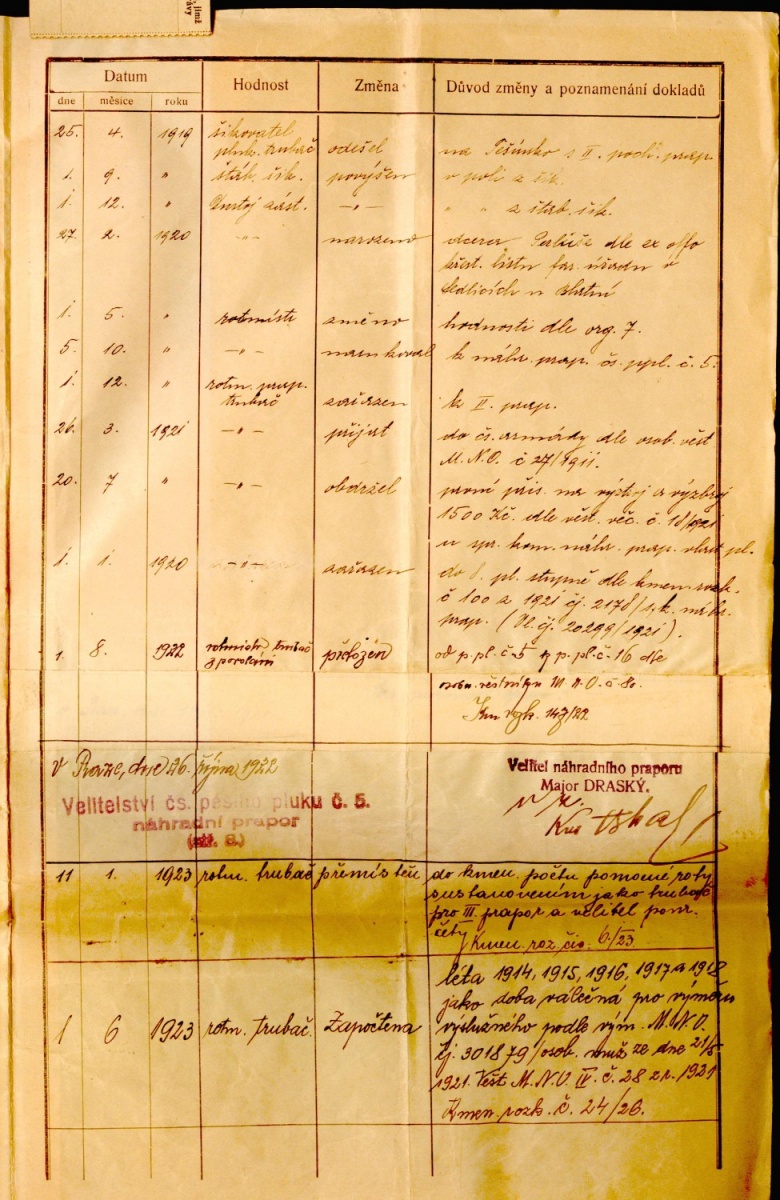 jimž
ávy
Datum
Hodnost
Změna
Důvod změny a poznamenání dokladů
dne měsíce roku
25. 4. 1919 šikovatel
pluk. trubač odešel na Těšínsko s II. prap.
1. 9. " štáb. šik. povýšen v poli z šik.
1. 12. " zást. -"- " " z štáb. šik.
27. 2. 1920 -"- narozena dcera dle ex offo
křest. listu far. úřadu v
Sedlicích u Blatné
1. 5. " rotmistr změna hodnosti dle org. 7.
5. 10. " -"- k náhr. prap. čs. ppl. č. 5.
1. 12. " rotm. prap.
trubač zařazen k II. prap.
26. 3. 1921 -"- přijat do čs. armády dle osob. věst
M.N.O. č 27/1911.
20. 7 " -"- obdržel první přís. na výstroj a výzbroj
1500 Kč. dle věst. věc. č. 18/1921
u kom. náhr. prap. pl.
1. 1. 1920 -"- zařazen do 8. pl. stupně dle kmen. rozk.
č 100 z 1921 čj. 2178 k. náhr.
prap. (Vl. čj. 20299/1921).
1. 8. 1922 rotmistr trubač
z povolání přeložen od p. pl. č. 5 p. pl. č. 16 dle
osobn. věstníku M N.O. č 80
Km rozk. 147/22
V Praze, dne 26. října 1922
Velitel náhradního praporu
Major DRASKÝ.
Velitelství čs. pěšího pluku č. 5.
náhradní prapor
v z.
11 1. 1923 rotm. trubač přemístěn do kmen. počtu pomocné roty
s ustanovením jako trubač
pro III prapor a velitel pomr.
čety
Kmen. roz. čís. 6./23.
1 6 1923 rotm. trubač. Započtena léta 1914, 1915, 1916, 1917 a 1918
jako doba válečná pro výměru
výslužného podle vým. M.N.O.
čj. 301879/osob. muž ze dne 21/5
1921. Věst M.N.O. IV. č. 28 z r. 1921
Kmen. rozk. č. 24/26.